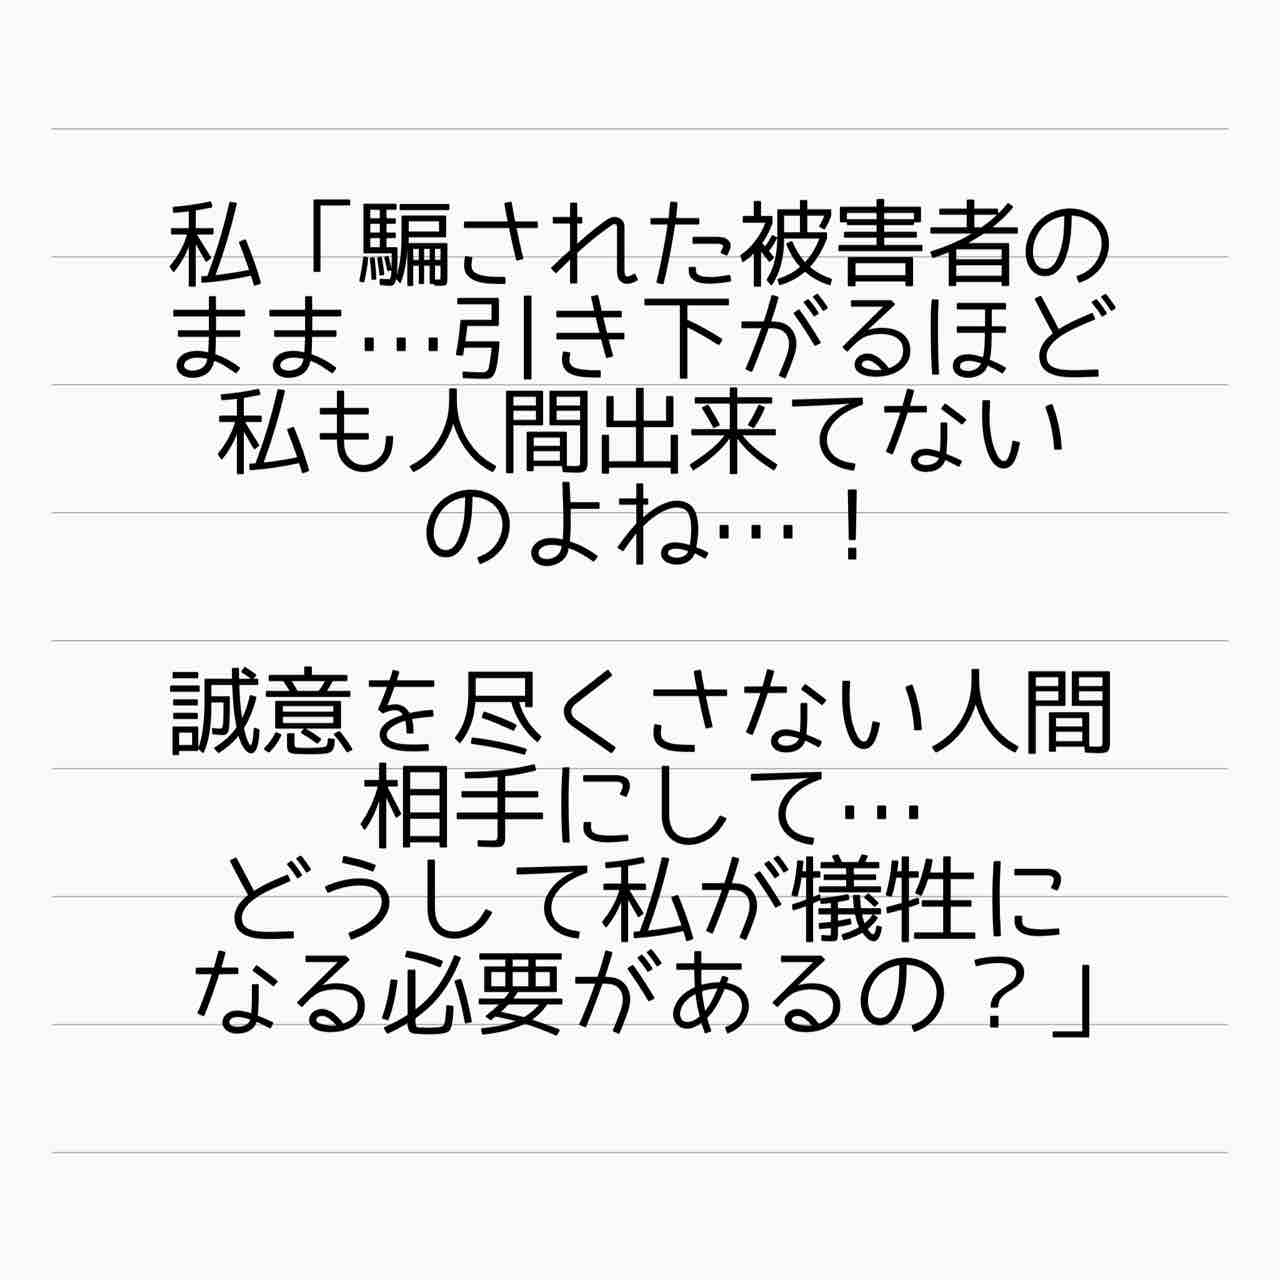 私「騙された被害者の
まま…引き下がるほど
私も人間出来てない
のよね…！
誠意を尽くさない人間
相手にして…
どうして私が犠牲に
なる必要があるの？」